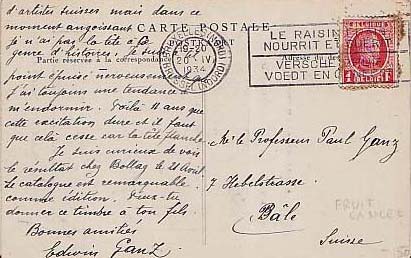 d'artistes suisses mais dans ce
moment angoissant
CARTE POSTALE
je n'ai pas la tête à ce
genre d'histoires. Je suis
Partie réservée à la correspondance
point épuisé nerveusement
j'ai toujours une tendance à
m'endormir. Voilà 11 ans que
cette excitation dure et il faut
que celà cesse car la tête flanche
Je suis curieux de voir
le résultat chez Bollag le 21 Avril
le catalogue est remarquable
comme édition. Peux-tu
donner ce timbre à ton fils.
Bonnes amitiés
Edwin Ganz
BRUXELLES (NORD)
20
20 IV
1934
BRUSSEL (NOORD)
LE RAISIN
NOURRIT ET
VERSCHE
VOEDT EN
BELGIQUE
1F
Mr le Professeur Paul Ganz
7 Hebelstrasse
Bâle
Suisse
FRUIT
CANCEL